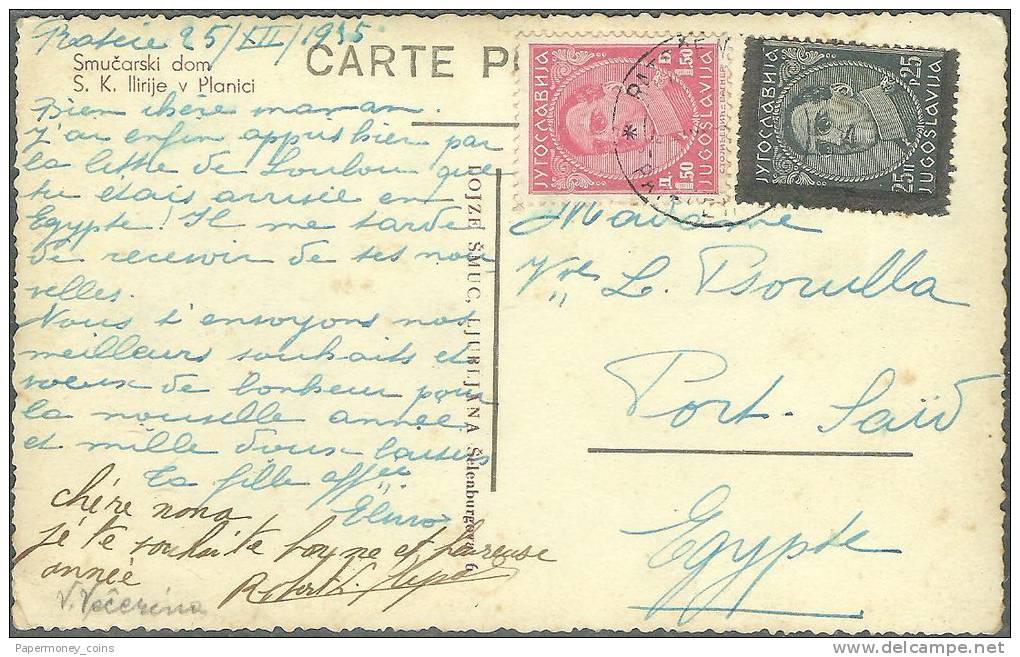 Rateče 25/XII/1935
Smučarski dom
S. K. Ilirije v Planici
CARTE P
Bien chère maman.
J'ai enfin appris hier par
la lettre de Loulou que
tu étais arrivée en
Egypte! Il me tarde
de recevoir de tes nou
velles.
Nous t'envoyons nos
meilleurs souhaits et
voeux de bonheur pour
la nouvelle année
et mille doux baisers
Ta fille aff
chére nona
je te souhaite bonne et heureuse
année
Robert
V. Večerina
LOJZE ŠMUC, LJUBLJANA Šelenburgova 6
ЈУГОСЛАВИЈА
Д 1.50 П 1.50
JUGOSLAVIJA
ЈУГОСЛАВИЈА
25П P25
JUGOSLAVIJA
Madame
Vve L. Psorulla
Port-Saïd
Egypte
Papermoney_coins
delcampe.net